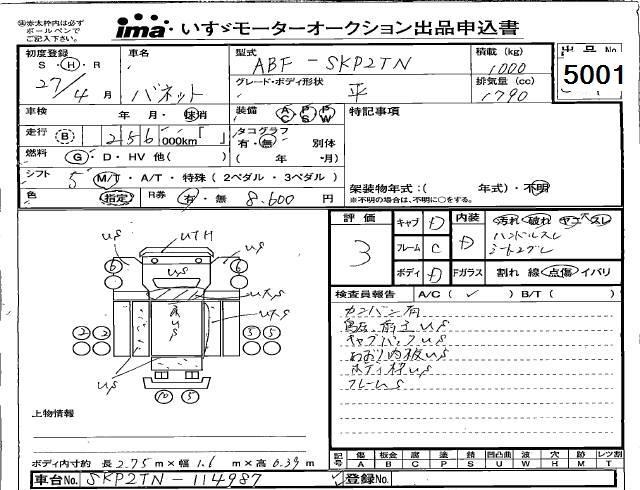 ㊟赤太枠内は必ず
ボールペンで
ご記入下さい。
ima・いすゞモーターオークション出品申込書
初度登録 車名 型式 積載(kg) 出品No
S・H・R 27/4月 バネット ABF-SKP2TN 1000
5001
グレード・ボディ形状 平 排気量(cc) 1790
車検 年 月・抹消 装備 AC PS PW 特記事項
走行 B 256 000km「 」 タコグラフ 有・無 別体
燃料 G・D・HV 他( ) ( 年 ・月)
シフト 5 M/T・A/T・特殊(2ペダル・3ペダル) 架装物年式:( 年式)・不明
※不明の場合は、不明に○をする。
色 指定 R券 有・無 8.600円
評価 3 キャブ D 内装 D 汚れ 破れ ヤニ スレ
ハンドルスレ
フレーム C
ボディ D Fガラス 割れ 線 点傷 イバリ
検査員報告 A/C(✓) B/T( )
カンバン有
キャブバックUS
あおり内板US
ボディ枠US
フレームS
US UTH US
6 6
US
UXS
UXS
2 2 5 5
US US
10 5
上物情報
ボディ内寸約 長2.75m×幅1.6m×高0.39m
記号 傷A 板金B 腐C 塗P 錆S 凹凸曲U 波W 穴H 跡M レツ割T
車台No. SKP2TN-114987 登録No.